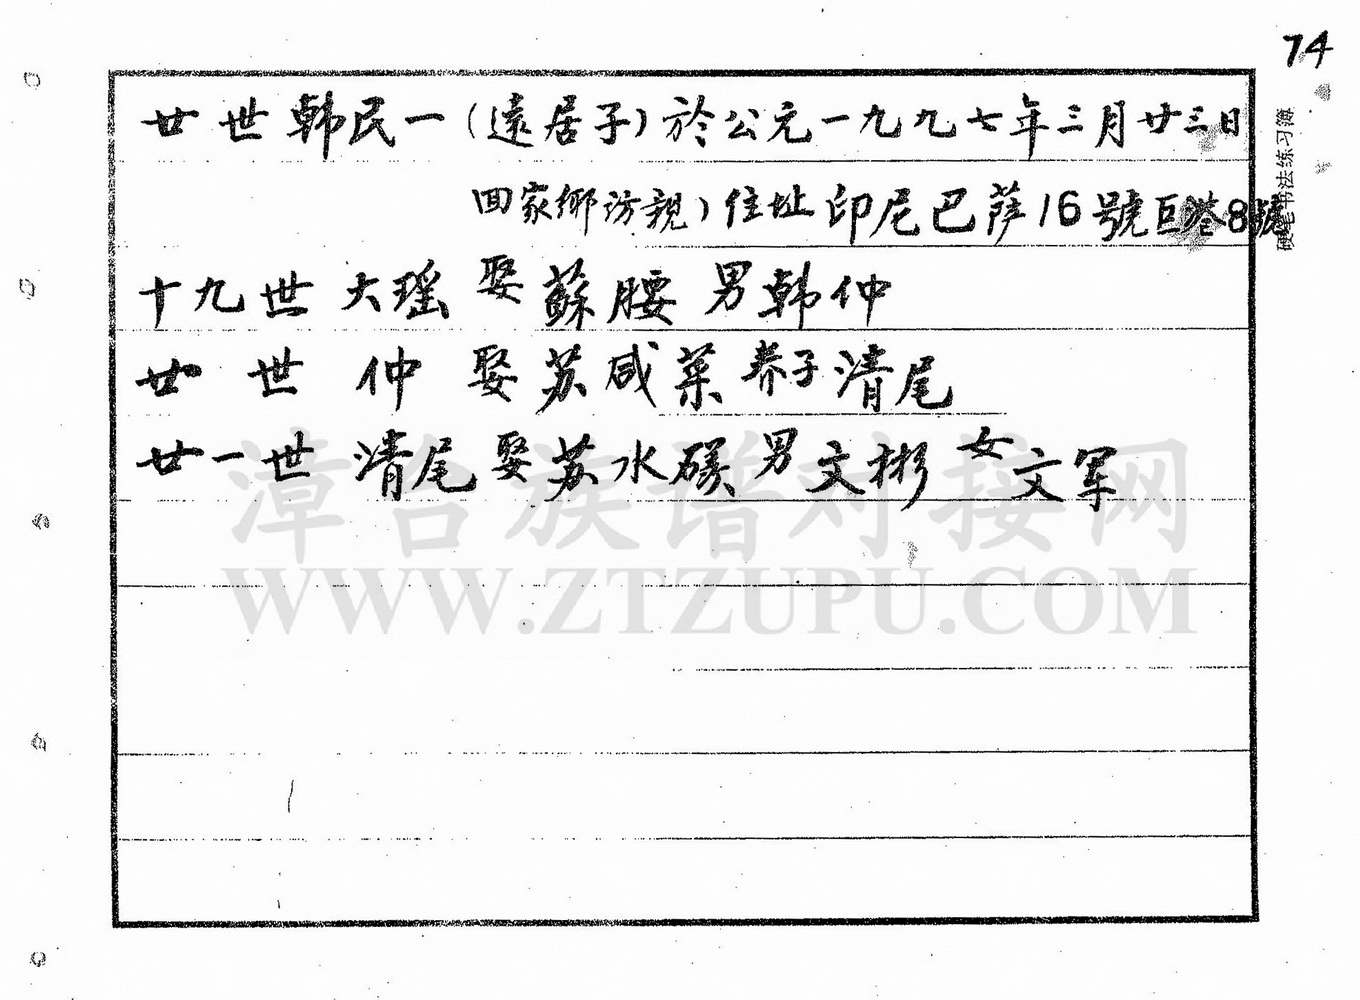 74
廿世韩民一(遠居子)於公元一九九七年三月廿三日
回家鄉訪親)住址印尼巴萨16號巨港8號
十九世大瑶娶蘇腰男韩仲
廿世仲娶苏咸菜养子清尾
廿一世清尾娶苏水磺男文彬女文军
硬笔书法练习簿
漳台族谱对接网
WWW.ZTZUPU.COM